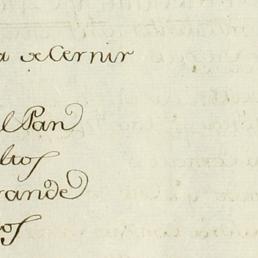 a de Cernir
el Pan
ltos
rande
os